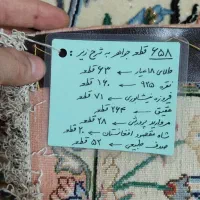 ۶۵۸ قطعه جواهر به شرح زیر:
طلای ۱۸ عیار ← ۶۳ قطعه
نقره ۹۲۵ ← ۱۶۰ قطعه
فیروزه نیشابوری ← ۷۱ قطعه
عقیق ← ۲۶۴ قطعه
مروارید پرورشی ← ۲۸ قطعه
شاه مقصود افغانستان ← ۲۰ قطعه
صدف طبیعی ← ۵۲ قطعه